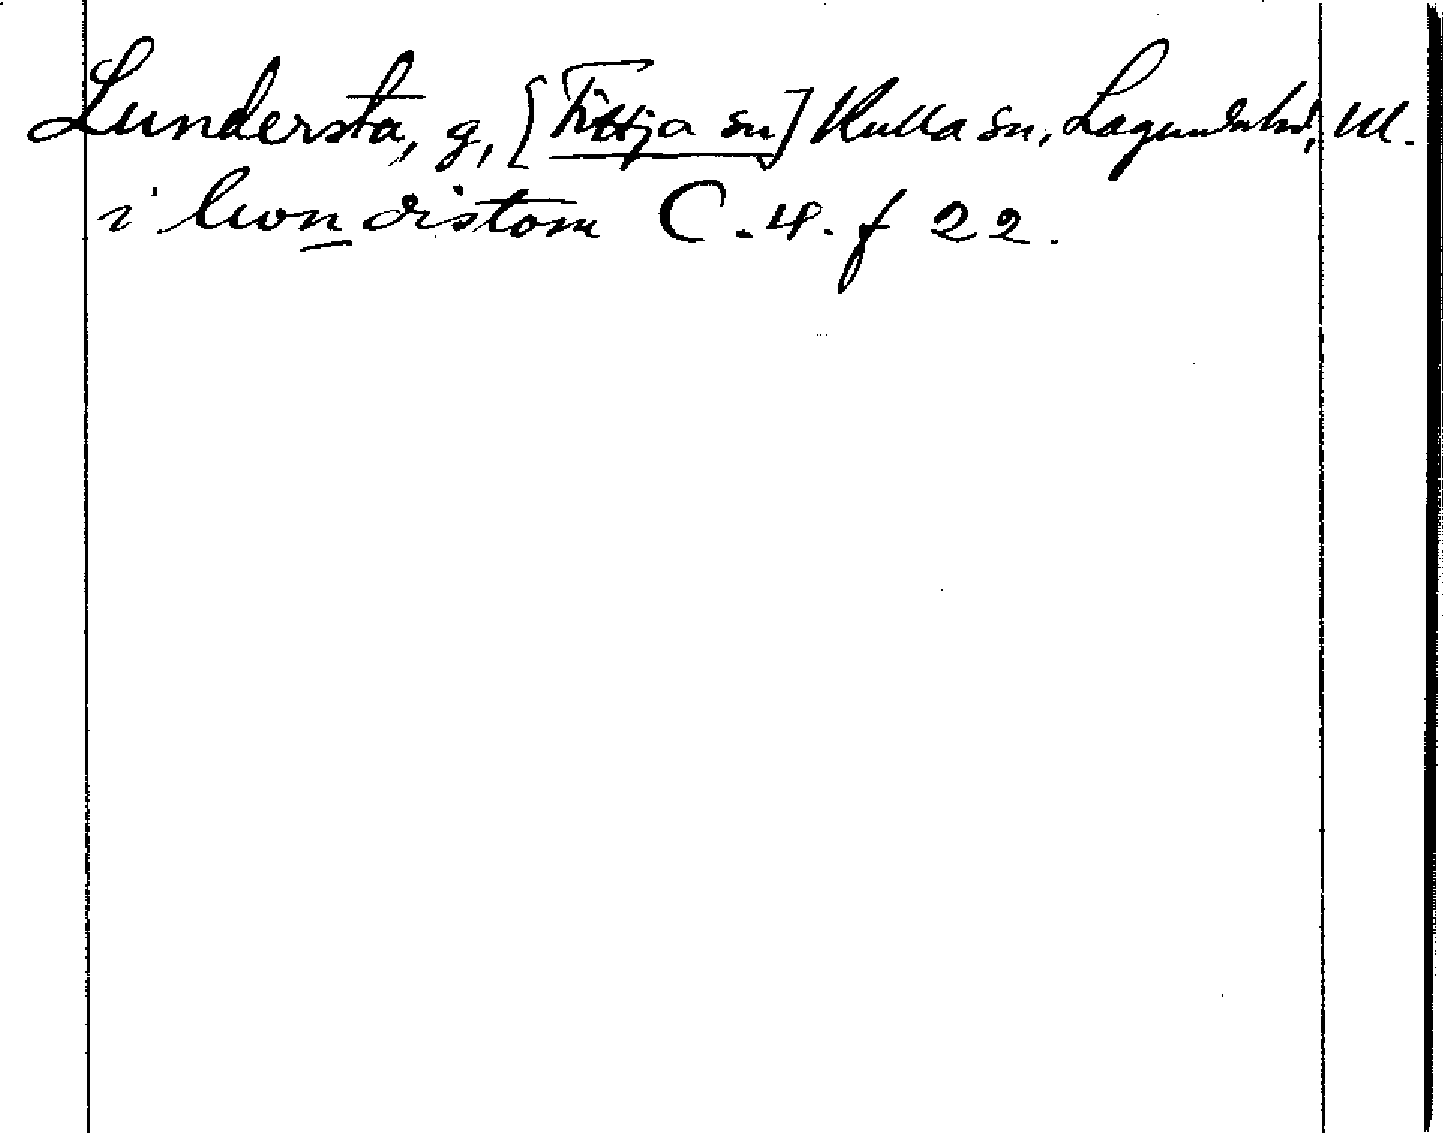 Lundersta, g, [Fittja sn] Kulla sn, Lagunda hd, Ul.
i lwndistom C. 4. f 22.